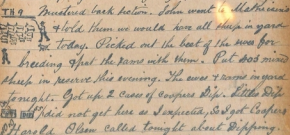 TH 9 Mustered back section. John went to Mathieson's
& told them we would have all sheep in yard
Today. Picked out the best of the ewes for
breeding & put the rams with them. Put 203 mixed
sheep in reserve this evening. The ewes & rams in yard
tonight. Got up 2 cases of Coopers Dip.
did not get here as I expected, so I got Coopers
Harold Olsen called tonight about Dipping.